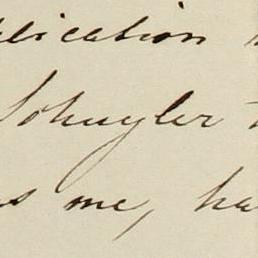 plication
Schuyler
me, ha